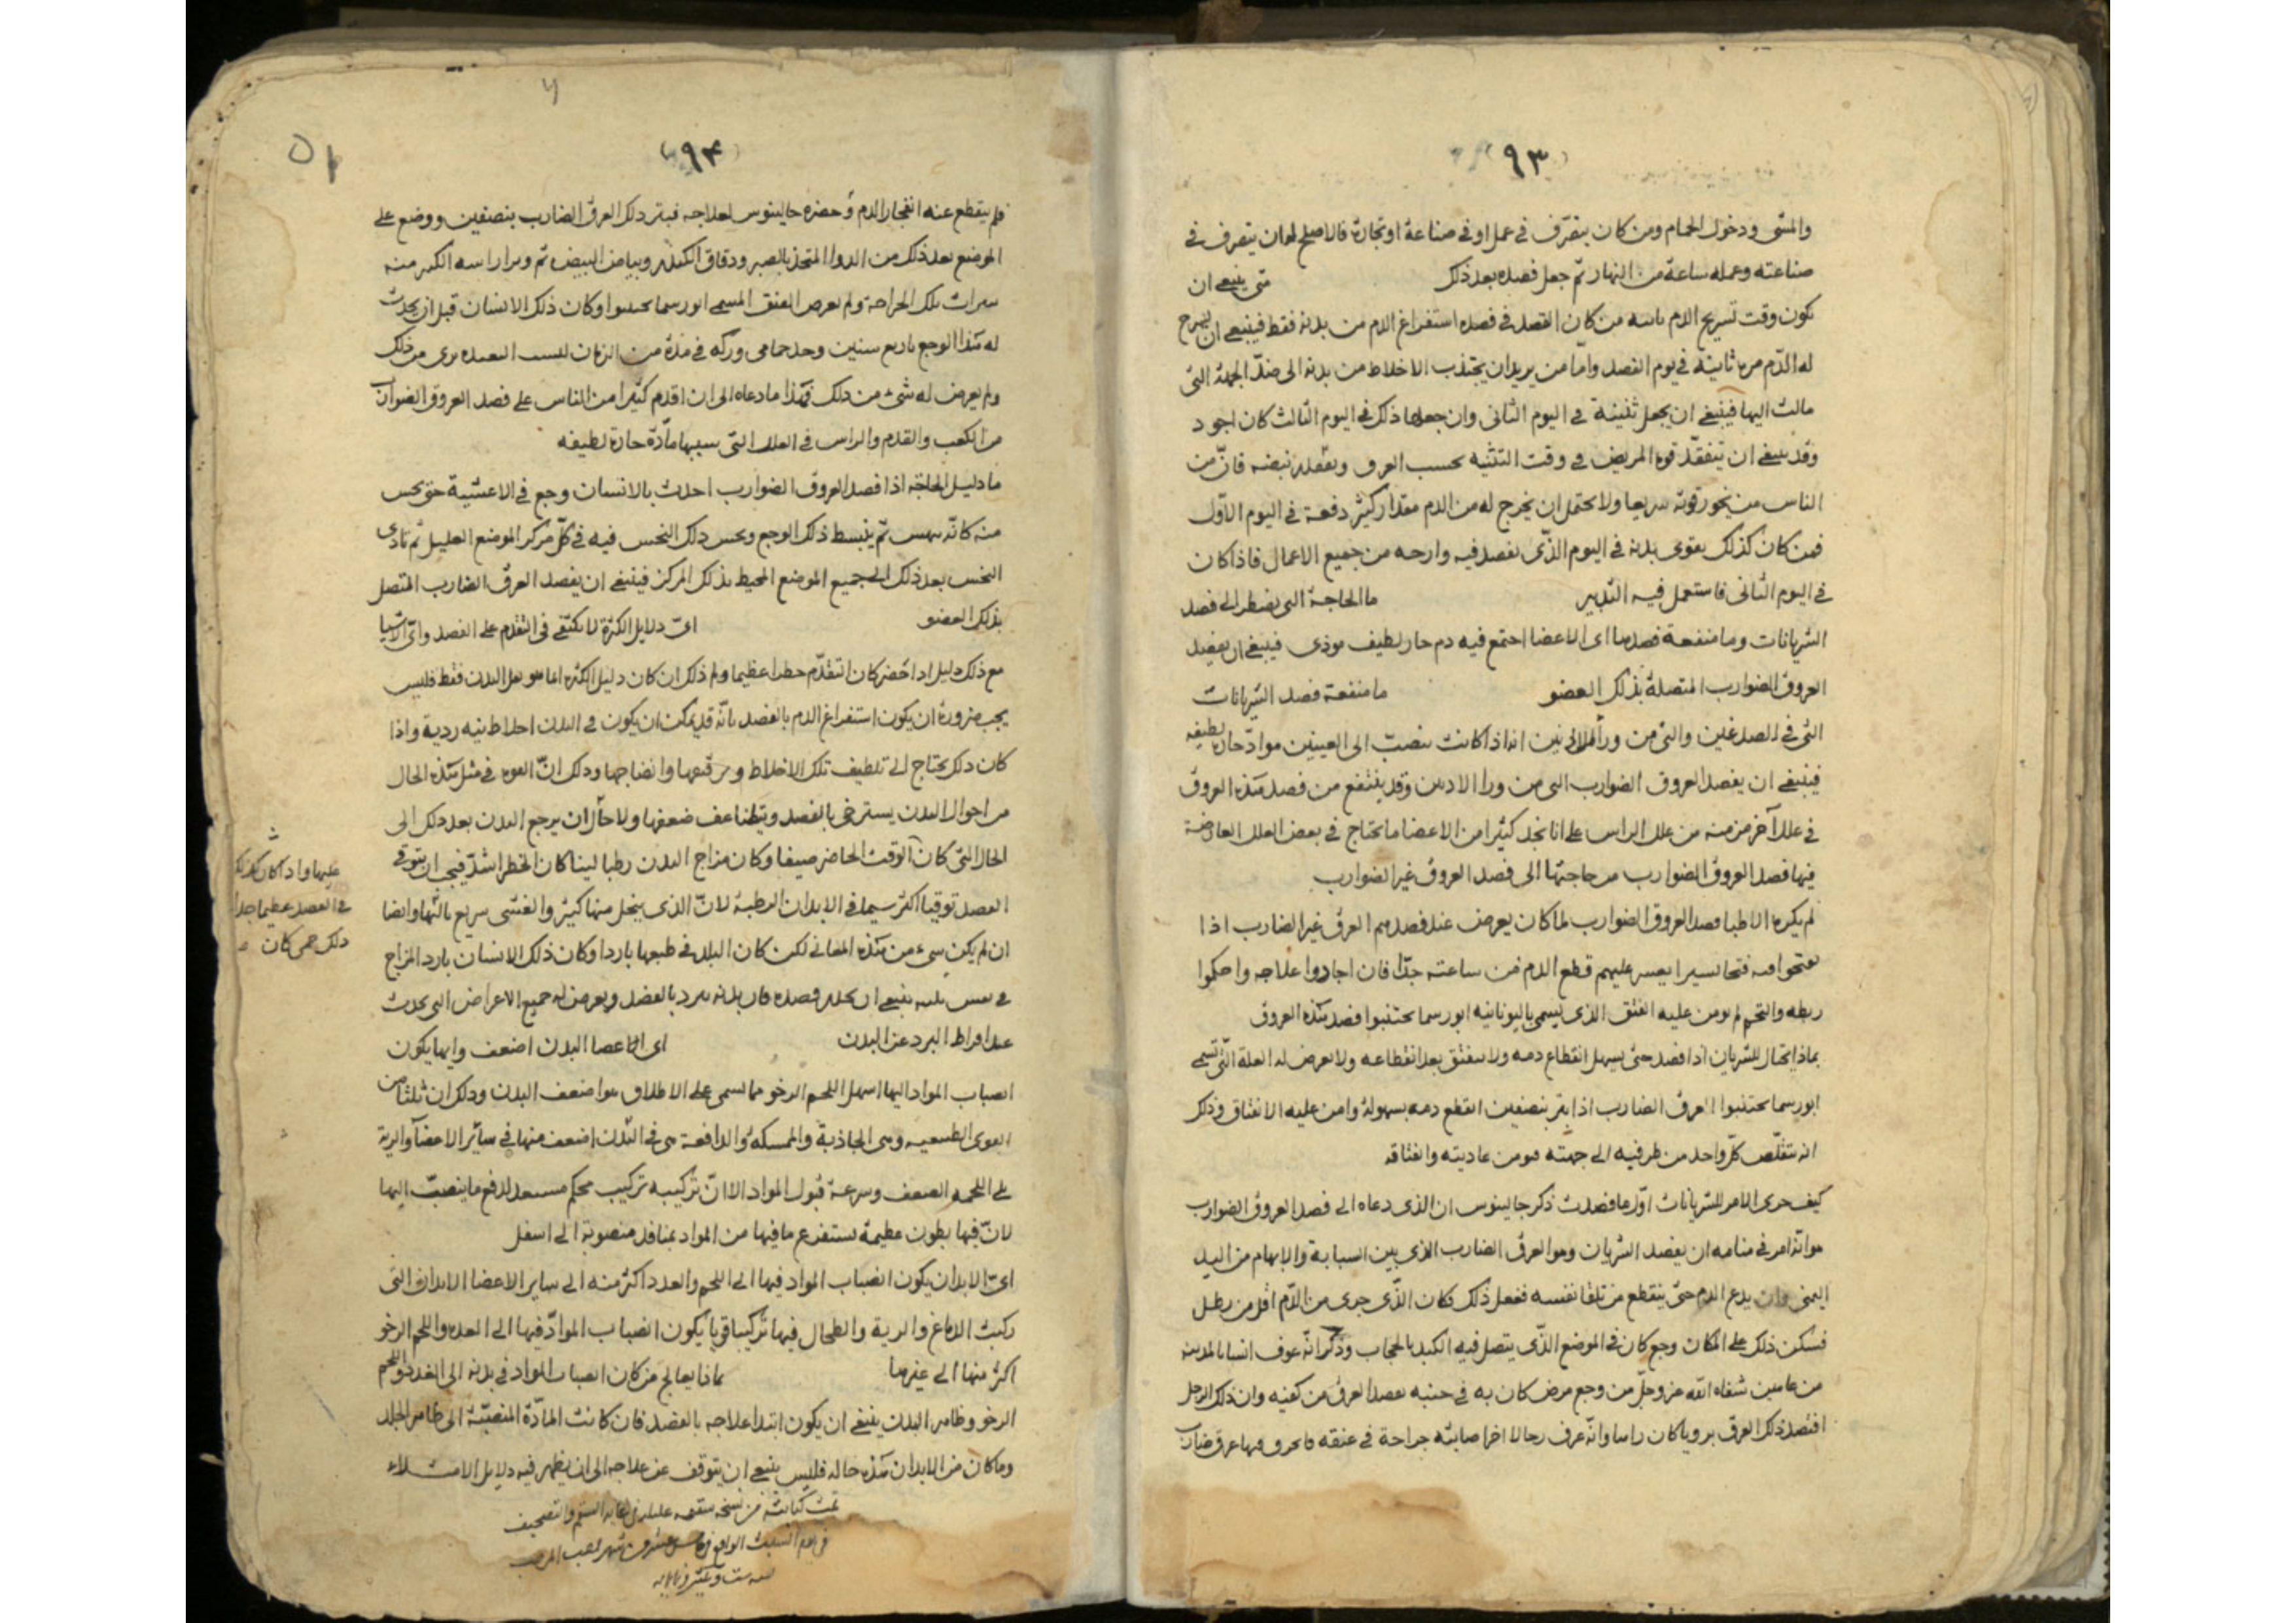 ٩٣
والمشى ودخول الحمام ومن كان يتصرف فى عمل او فى صناعة او تجارة فالاصلح له ان يتصرف فى
صناعته وعمله ساعة من النهار ثم جعل فصده بعد ذلك متى ينبغى ان
يكون وقت تسريح الدم ثانيه من كان القصد فى فصده استفراغ الدم من بدنه فقط فينبغى ان يسرح
له الدم مرة ثانية فى يوم الفصد واما من يريد ان يجتذب الاخلاط من بدنه الى ضد الجهة التى
مالت اليها فينبغى ان يجعل تثنيته فى اليوم الثانى وان جعلها ذلك فى اليوم الثالث كان اجود
وقد ينبغى ان يتفقد قوة المريض فى وقت التثنيه بحسب العرق وتفقد نبضه فان من
الناس من يخور قوته سريعا ولا يحتمل ان يخرج له من الدم مقدار كثير دفعة فى اليوم الاول
فمن كان كذلك يقوى بدنه فى اليوم الذى يفصد فيه وارحه من جميع الاعمال فاذا كان
فى اليوم الثانى فاستعمل فيه التدبير ما الحاجة التى يضطر الى فصد
الشريانات وما منفعة فصدها اى الاعضا اجتمع فيه دم حار لطيف موذى فينبغى ان يفصد
العروق الضوارب المتصلة بذلك العضو ما منفعة فصد الشريانات
التى فى الصدغين والتى من ورا الاذنين انه اذا كانت تنصب الى العينين مواد حارة لطيفه
فينبغى ان يفصد العروق الضوارب التى من ورا الاذنين وقد ينتفع من فصد هذه العروق
فى علل آخر مزمنه من علل الراس على انا نجد كثيرا من الاعضا ما يحتاج فى بعض العلل العارضة
فيها فصد العروق الضوارب من حاجتها الى فصد العروق غير الضوارب
لم يكره الاطبا فصد العروق الضوارب لما كان يعرض عند فصدهم العرق غير الضارب اذا
فتحوا فيه فتحا يسيرا يعسر عليهم قطع الدم من ساعته جدا فان اجادوا علاجه واحكموا
ربطه والتحم لم يومن عليه الفتق الذى يسمى باليونانيه ابورسما تجتنبوا فصد هذه العروق
بماذا يحتال للشريان اذا فصد حتى يسهل انقطاع دمه ولا ينفتق بعد انقطاعه ولا يعرض له العلة التى تسمى
ابورسما تجتنبوا العرق الضارب اذا بتر بنصفين انقطع دمه بسهولة وامن عليه الانفتاق وذلك
انه يتقلص كل واحد من طرفيه الى جهته فيومن عاديته وانفتاقه
كيف جرى الامر للشريانات اول ما فصدت ذكر جالينوس ان الذى دعاه الى فصد العروق الضوارب
هو انه امر فى منامه ان يفصد الشريان وهو العرق الضارب الذى بين السبابة والابهام من اليد
اليمنى وان يدع الدم حتى ينقطع من تلقا نفسه ففعل ذلك فكان الذى جرى من الدم اقل من رطل
فسكن ذلك على المكان وجع كان فى الموضع الذى يتصل فيه الكبد بالحجاب وذكر انه عرف انسانا بالمدينه
من عامين شفاه الله عز وجل من وجع مرض كان به فى جنبه بفصد العرق من كفيه وان ذلك الرجل
افتصد ذلك العرق برويا كان راها وانه عرف رجلا اخر اصابته جراحة فى عنقه فانحرق فيها عرق ضارب
٩٤
٥١
فلم ينقطع عنه انفجار الدم وحضره جالينوس لعلاجه فبتر ذلك العرق الضارب بنصفين ووضع على
الموضع بعد ذلك من الدوا المتخذ بالصبر ودقاق الكندر وبياض البيض ثم
تلك الجراحة ولم يعرض الفتق المسمى ابورسما تجتنبوا وكان ذلك الانسان قبل ان يحدث
له هذا الوجع باربع سنين وجد حما فى وركه فى مدة من الزمان برى من ذلك
ولم يعرض له شىء من ذلك فهذا ما دعاه الى ان اقدم كثيرا من الناس على فصد العروق الضوارب
من الكعب والقدم والراس فى العلل التى سببها مادة حارة لطيفه
ما دليل الحاجة اذا فصد العروق الضوارب احدث بالانسان وجع فى الاغشية حتى يحس
منه كانه ينهس ثم ينبسط ذلك الوجع ويحس ذلك النخس فيه فى كل مركز الموضع العليل ثم تادى
النخس بعد ذلك الى جميع الموضع المحيط بذلك المركز فينبغى ان يفصد العرق الضارب المتصل
بذلك العضو اى دلايل الكثرة لا يكتفى فى التقدم على الفصد واى الاشيا
مع ذلك دليل اذا حضر كان التقدم خطرا عظيما ولم ذلك ان كان دليل الكثرة انما هو ثقل البدن فقط فليس
يجب ضرورة ان يكون استفراغ الدم بالفصد بانه قد يمكن ان يكون فى البدن اخلاط نيه ردية واذا
كان ذلك يحتاج الى تلطيف تلك الاخلاط وترقيقها وانضاجها وذلك ان القوه فى مثل هذه الحال
من احوال البدن يسترخى بالفصد ويتضاعف ضعفها ولا حال ان يرجع البدن بعد ذلك الى
الحال التى كان الوقت الحاضر صيفا وكان مزاج البدن رطبا لينا كان الخطر اشد فيجب ان يتوقى
عليها واذا كان كذلك
فى الفصد عظيما جدا
ذلك حمى كان
الفصد توقيا اكثر سيما فى الابدان الرطبة لان الذى ينحل منها كثير والغشى سريع بالتهاو ايضا
ان لم يكن شىء من هذه المعانى لكن كان البلد فى طبعها باردا وكان ذلك الانسان بارد المزاج
فى نفس بدنه ينبغى ان يحذر فصده فان بدنه يبرد بالفصد ويعرض له جميع الاعراض التى يحدث
عند افراط البرد عن البدن اى الاعضا البدن اضعف وايها يكون
انصباب المواد اليها اسهل اللحم الرخو مما يسمى على الاطلاق هو اضعف البدن وذلك ان ثلثا من
القوى الطبيعيه وهى الجاذبة والممسكة والدافعة هى فى الثلث اضعف منها فى سائر الاعضا والرية
على اللحميه الضعف وسرعة قبول المواد الا ان تركيبه تركيب محكم مستعد لدفع ما ينصب اليها
لان فيها بطون عظيمة يستفرغ ما فيها من المواد بمنافذ منصوبة الى اسفل
اى الابدان يكون انصباب المواد فيها الى اللحم والغدد اكثر منه الى ساير الاعضا الابدان التى
ركبت الدماغ والرية والطحال فيها تركيبا قويا يكون انصباب المواد فيها الى الغدد واللحم الرخو
اكثر منها الى غيرها بماذا يعالج من كان انصباب المواد فى بدنه الى الغدد واللحم
الرخو وظاهر البدن ينبغى ان يكون ابتدا علاجه بالفصد فان كانت المادة المنصبة الى ظاهر الجلد
وما كان من الابدان هذه حاله فليس ينبغى ان يتوقف عن علاجه الى ان يظهر فيه دلايل الامتلاء
تمت كتابته من نسخه سقيمه السقم والتصحيف
فى يوم السبت الواقع عشر من شهر
سنه ست وعشر